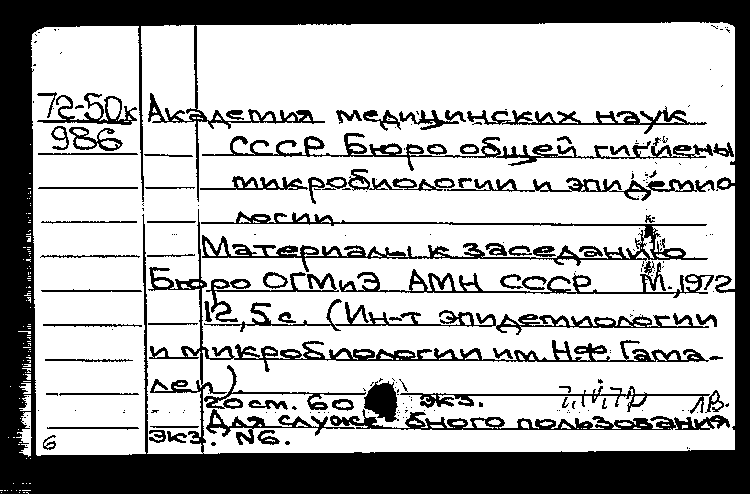 72-50к Академия медицинских наук
986 СССР. Бюро общей гигиены
микробиологии и эпидемио-
логии.
Материалы к заседанию
Бюро ОГМиЭ АМН СССР. М., 1972
12,5 с. (Ин-т эпидемиологии
и микробиологии им. Н.Ф. Гама-
леи)
20 ст. 60 экз. 7.IV.72 ЛВ.
Для служебного пользования.
экз. N6.
6